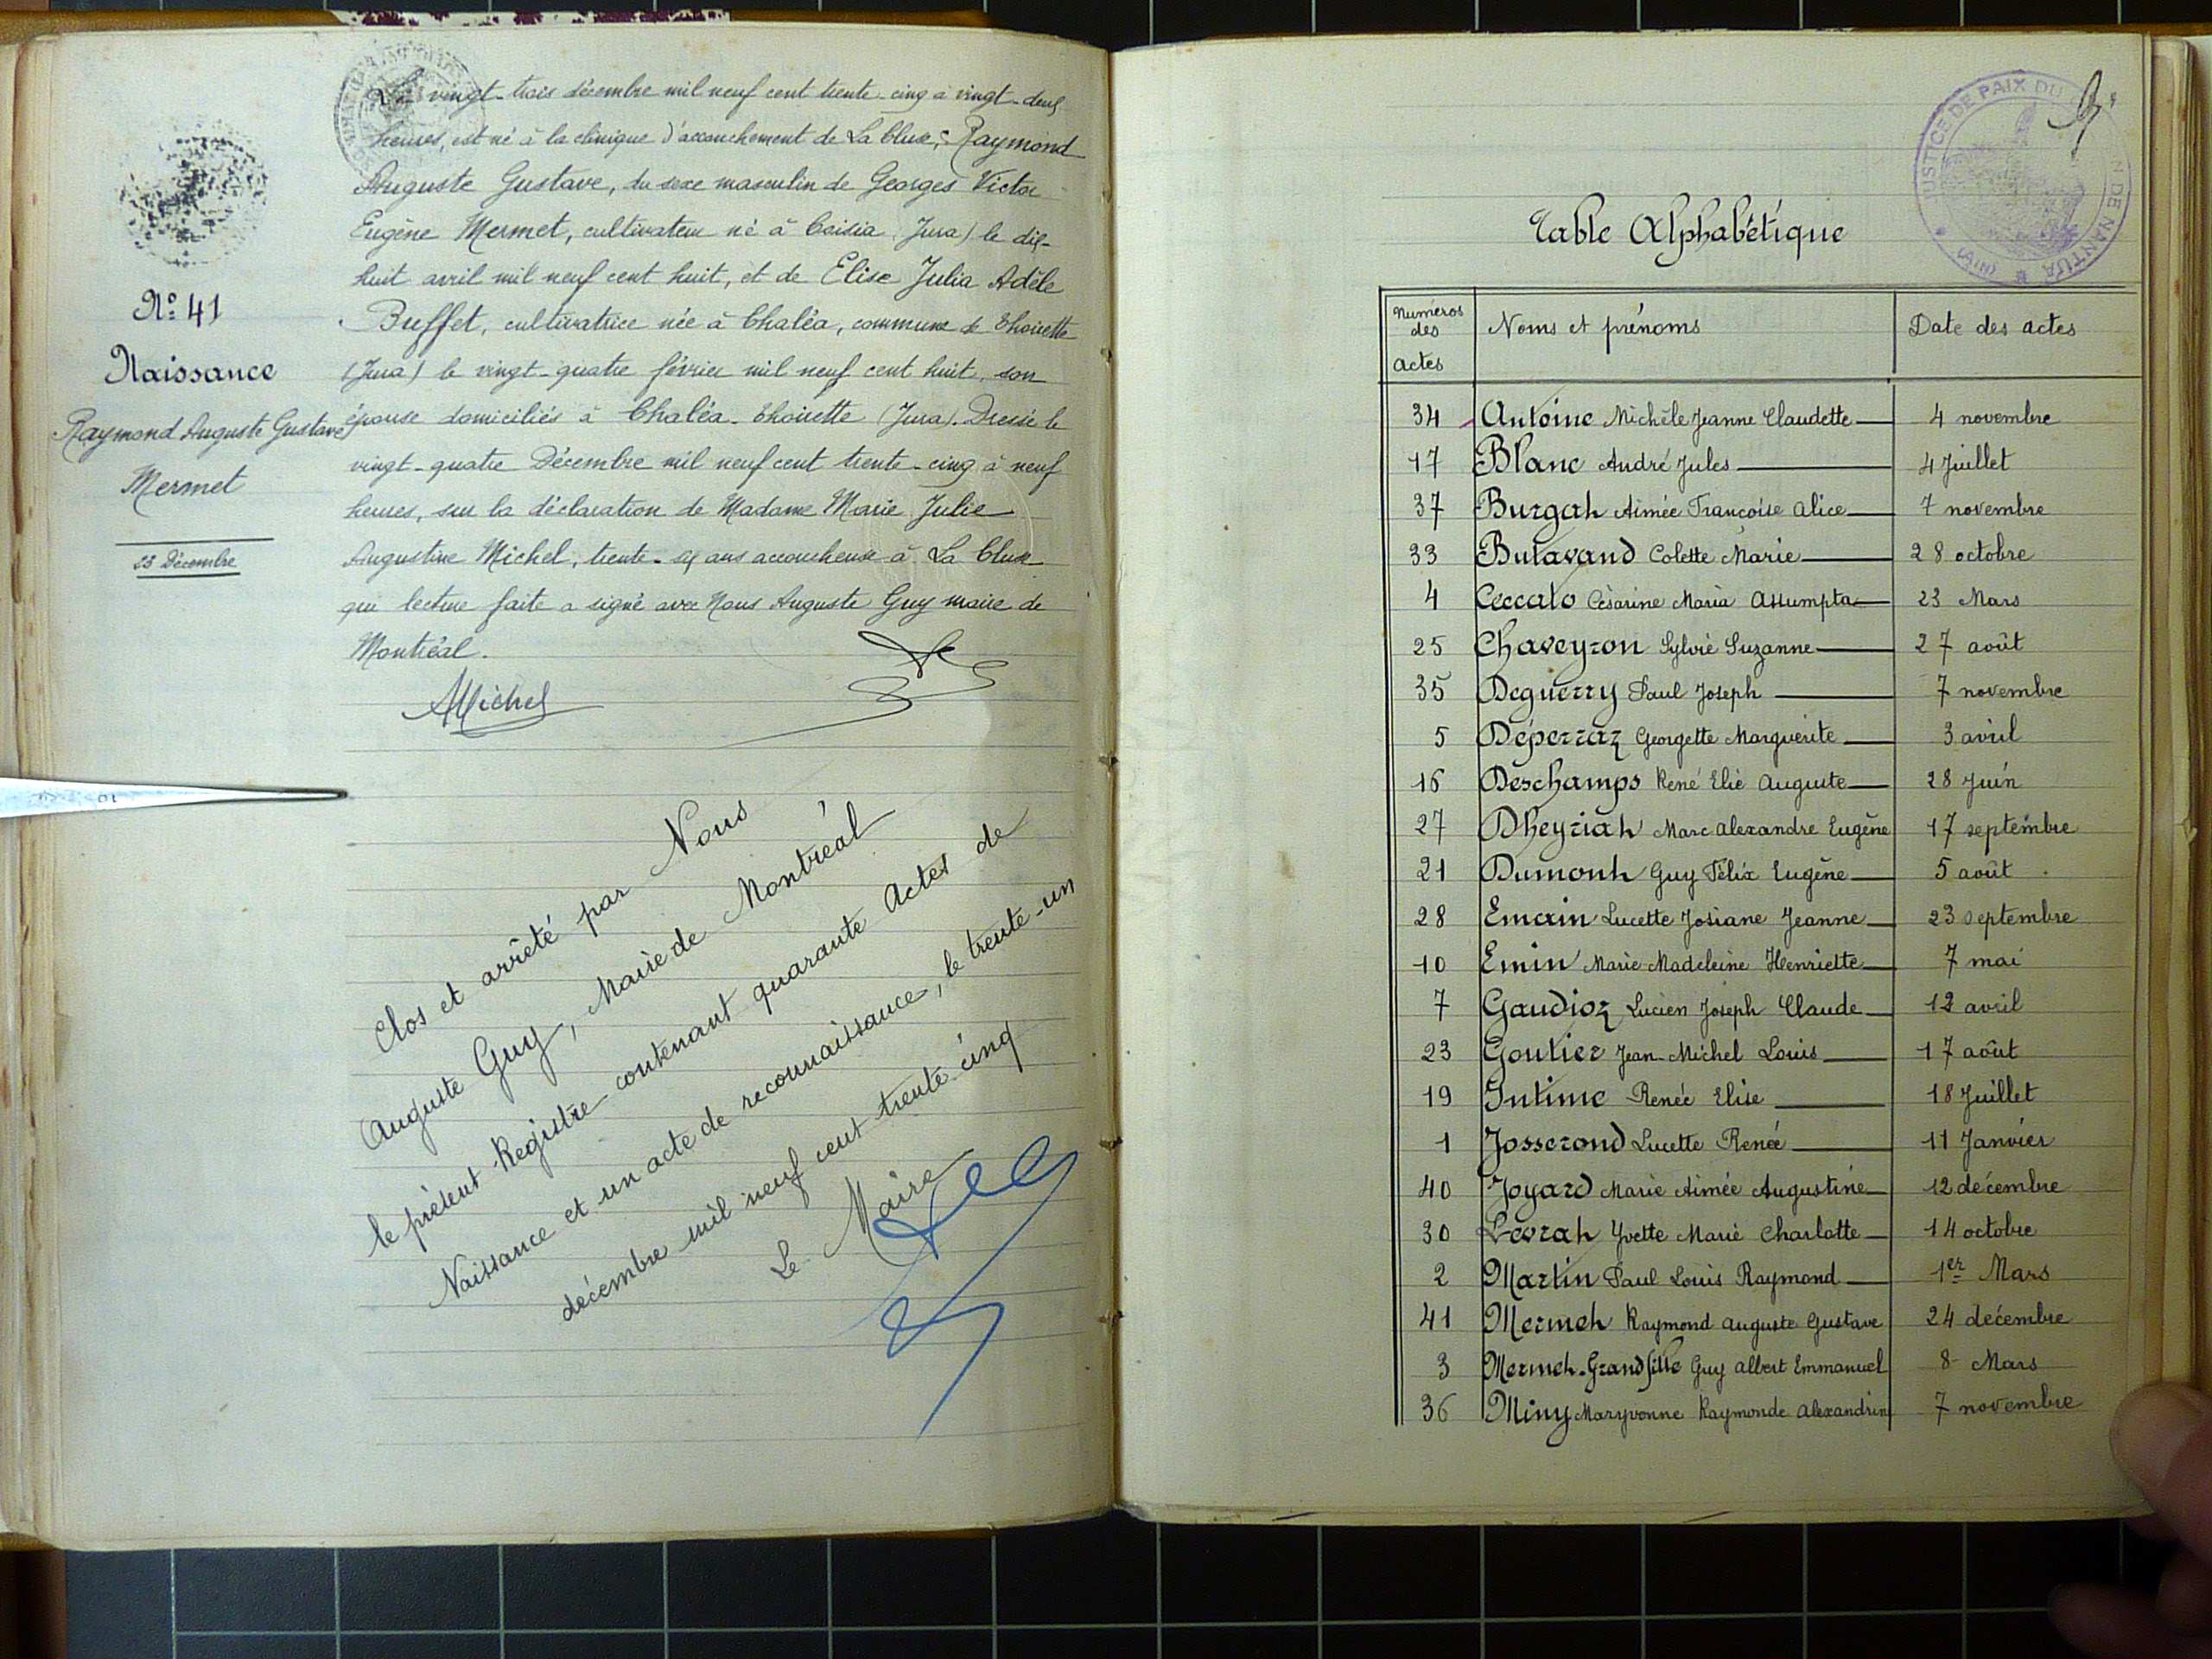 Le vingt-trois décembre mil neuf cent trente-cinq à vingt-deux
heures, est né à la clinique d'accouchement de La Cluse, Raymond
Auguste Gustave, du sexe masculin de Georges Victor
Eugène Mermet, cultivateur né à Coisia (Jura) le dix-
huit avril mil neuf cent huit, et de Elise Julia Adèle
Buffet, cultivatrice née à Chaléa, commune de Thoirette
(Jura) le vingt-quatre février mil neuf cent huit, son
épouse domiciliés à Chaléa-Thoirette (Jura). Dressé le
vingt-quatre Décembre mil neuf cent trente-cinq à neuf
heures, sur la déclaration de Madame Marie Julie
Augustine Michel, trente-six ans accoucheuse à La Cluse
qui lecture faite a signé avec Nous Auguste Guy maire de
Montréal.
AMichel
N° 41
Naissance
Raymond Auguste Gustave
Mermet
23 Décembre
Clos et arrêté par Nous
Auguste Guy, Maire de Montréal
le présent Registre contenant quarante Actes de
Naissance et un acte de reconnaissance, le trente-un
décembre mil neuf cent trente cinq
Le Maire
JUSTICE DE PAIX DU CANTON DE NANTUA (AIN)
Table Alphabétique
Numéros des actes Noms et prénoms Date des actes
34 Antoine Michèle Jeanne Claudette 4 novembre
17 Blanc André Jules 4 Juillet
37 Burgat Aimée Françoise Alice 7 novembre
33 Butavand Colette Marie 28 octobre
4 Ceccato Césarine Maria Assumpta 23 Mars
25 Chaveyron Sylvie Suzanne 27 août
35 Deguerry Paul Joseph 7 novembre
5 Déperraz Georgette Marguerite 3 avril
16 Deschamps René Elie Auguste 28 Juin
27 Dheyriat Marc Alexandre Eugène 17 septembre
21 Dumont Guy Félix Eugène 5 août
28 Emain Lucette Josiane Jeanne 23 septembre
10 Emin Marie Madeleine Henriette 7 mai
7 Gaudioz Lucien Joseph Claude 12 avril
23 Goutier Jean-Michel Louis 17 août
19 Intime Renée Elise 18 Juillet
1 Josserond Lucette Renée 11 Janvier
40 Joyard Marie Aimée Augustine 12 décembre
30 Levrat Yvette Marie Charlotte 14 octobre
2 Martin Paul Louis Raymond 1er Mars
41 Mermet Raymond Auguste Gustave 24 décembre
3 Mermet-Grandfille Guy Albert Emmanuel 8 Mars
36 Miny Maryvonne Raymonde Alexandrine 7 novembre